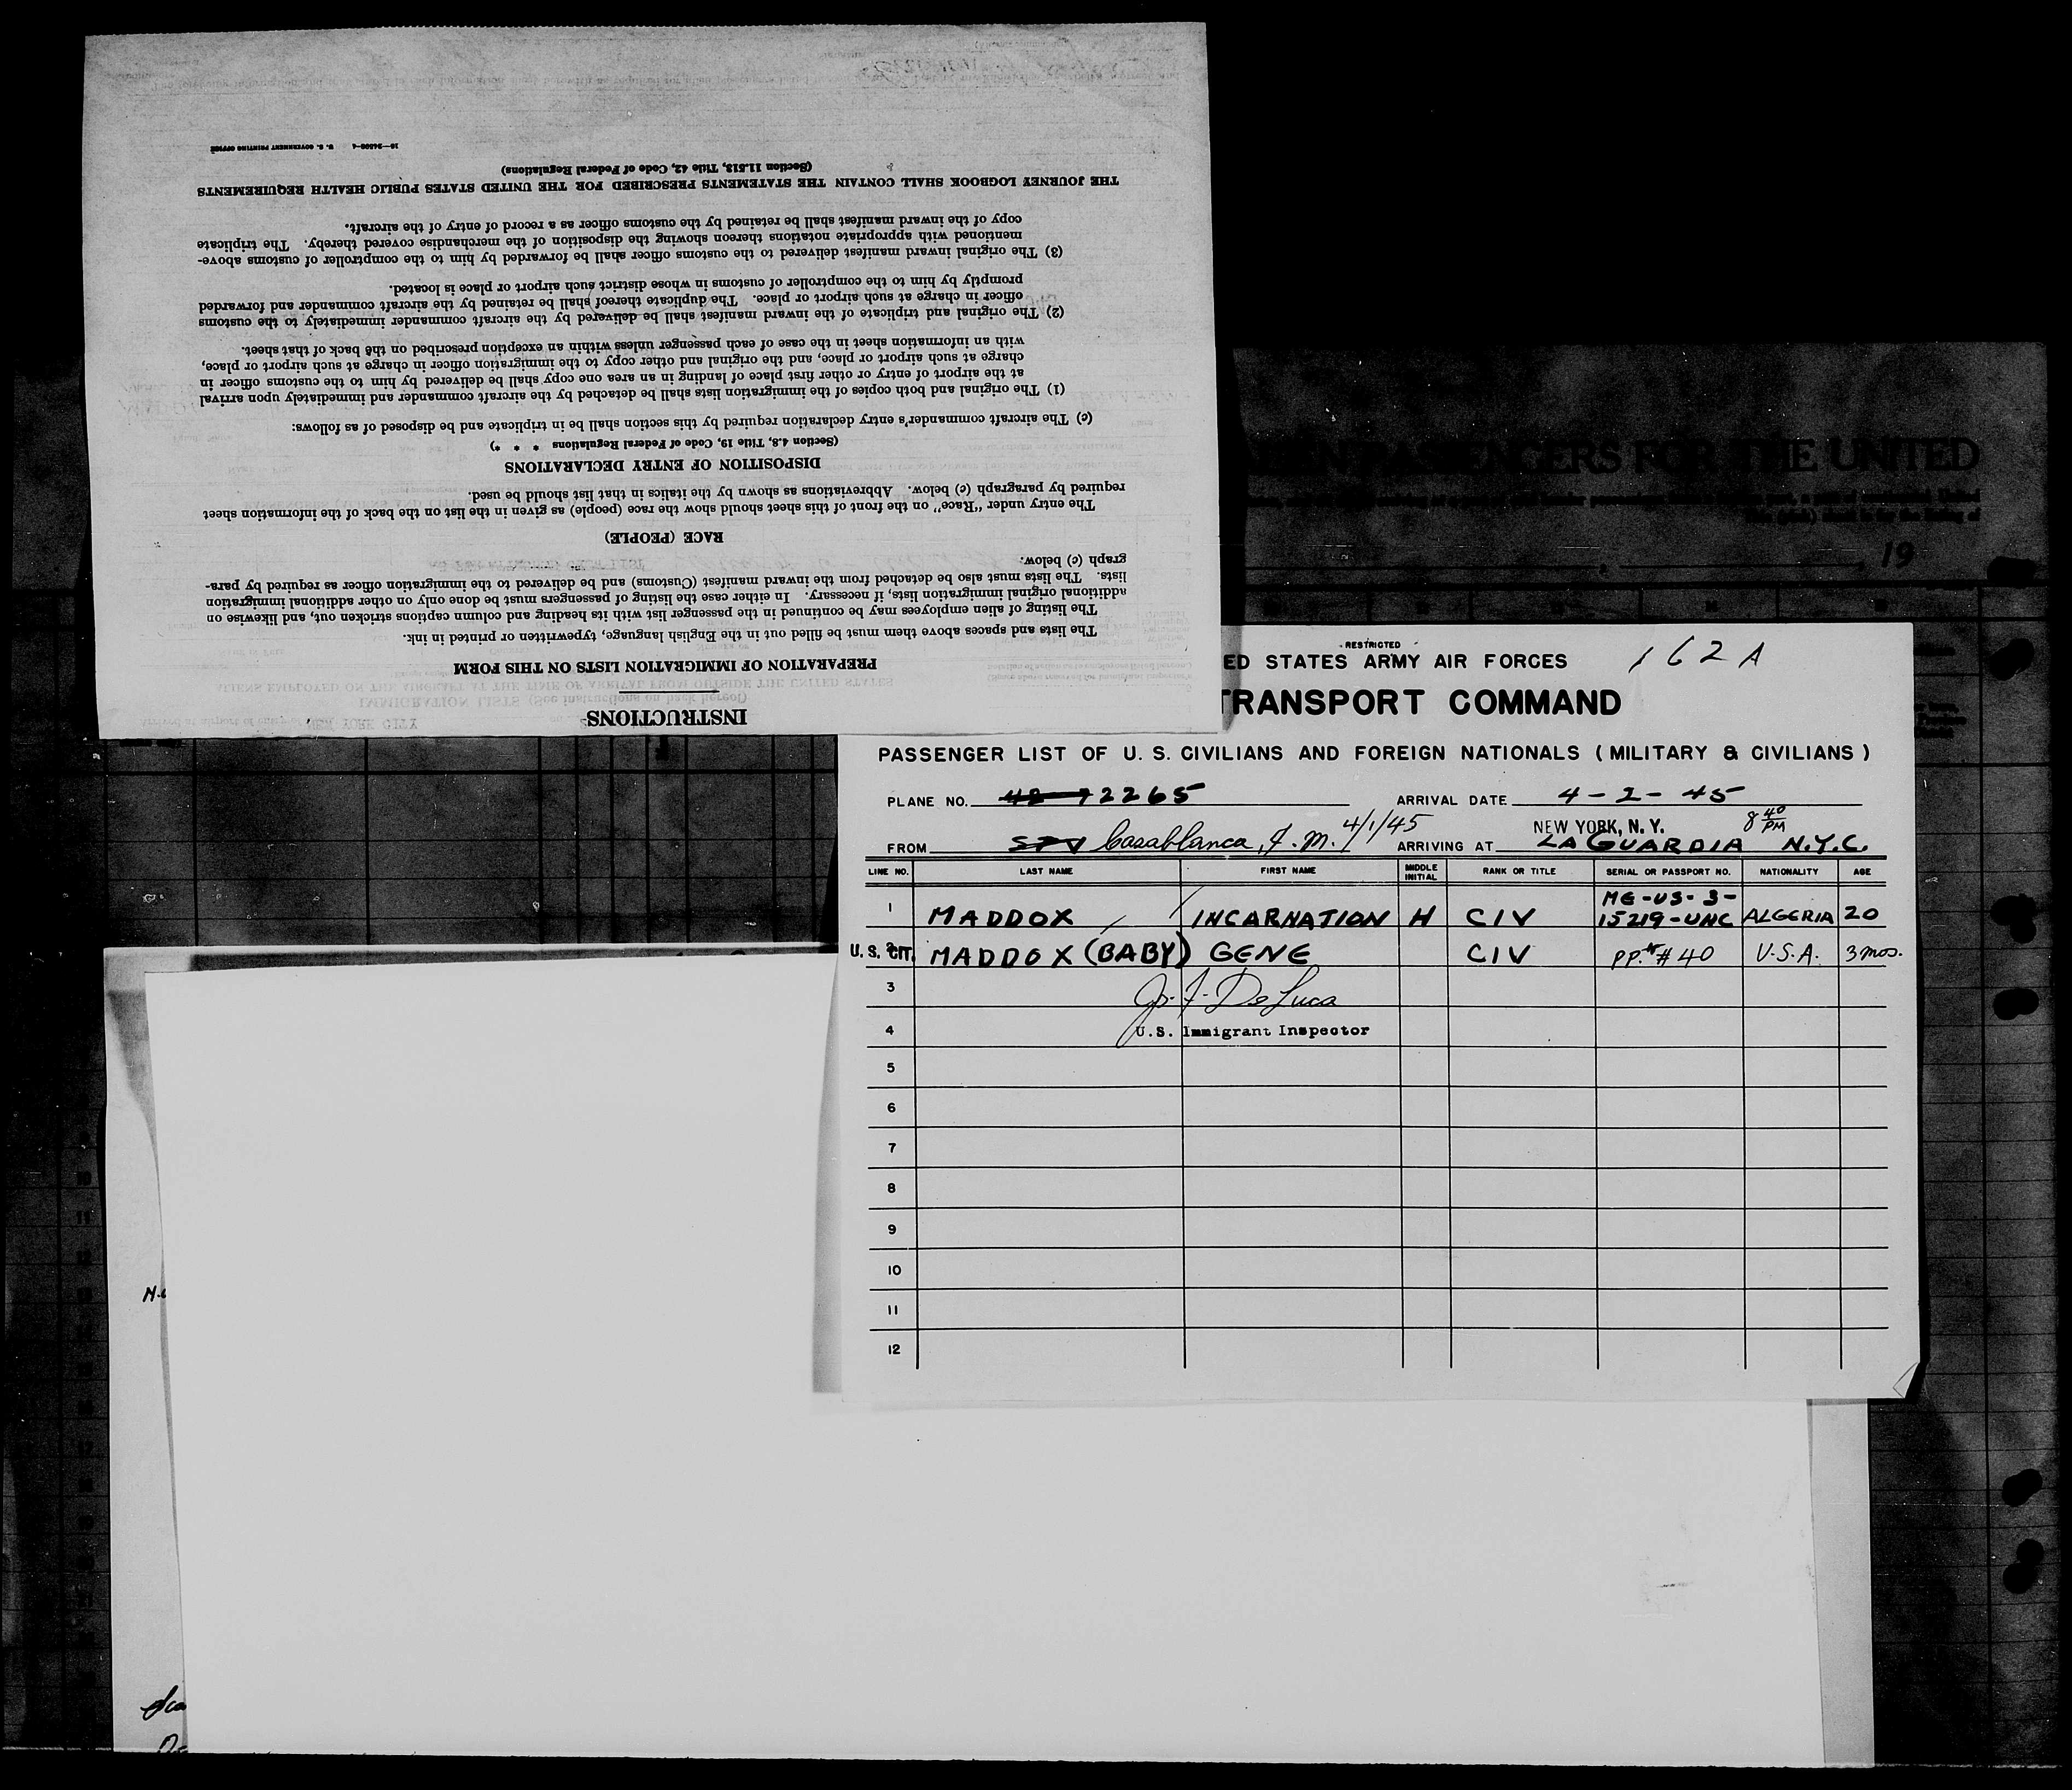 INSTRUCTIONS
PREPARATION OF IMMIGRATION LISTS ON THIS FORM
The lists and spaces above them must be filled out in the English language, typewritten or printed in ink.
The listing of alien employees may be continued in the passenger list with its heading and column captions stricken out, and likewise on
additional original immigration lists, if necessary. In either case the listing of passengers must be done only on other additional immigration
lists. The lists must also be detached from the inward manifest (Customs) and be delivered to the immigration officer as required by para-
graph (c) below.
RACE (PEOPLE)
The entry under "Race" on the front of this sheet should show the race (people) as given in the list on the back of the information sheet
required by paragraph (c) below. Abbreviations as shown by the italics in that list should be used.
DISPOSITION OF ENTRY DECLARATIONS
(Section 4.8, Title 19, Code of Federal Regulations * * *)
(c) The aircraft commander's entry declaration required by this section shall be in triplicate and be disposed of as follows:
(1) The original and both copies of the immigration lists shall be detached by the aircraft commander and immediately upon arrival
at the airport of entry or other first place of landing in an area one copy shall be delivered by him to the customs officer in
charge at such airport or place, and the original and other copy to the immigration officer in charge at such airport or place,
with an information sheet in the case of each passenger unless within an exception prescribed on the back of that sheet.
(2) The original and triplicate of the inward manifest shall be delivered by the aircraft commander immediately to the customs
officer in charge at such airport or place. The duplicate thereof shall be retained by the aircraft commander and forwarded
promptly by him to the comptroller of customs in whose district such airport or place is located.
(3) The original inward manifest delivered to the customs officer shall be forwarded by him to the comptroller of customs above-
mentioned with appropriate notations thereon showing the disposition of the merchandise covered thereby. The triplicate
copy of the inward manifest shall be retained by the customs officer as a record of entry of the aircraft.
THE JOURNEY LOGBOOK SHALL CONTAIN THE STATEMENTS PRESCRIBED FOR THE UNITED STATES PUBLIC HEALTH REQUIREMENTS
(Section 11.513, Title 42, Code of Federal Regulations)
U. S. GOVERNMENT PRINTING OFFICE
PASSENGERS FOR THE UNITED
19
RESTRICTED
ED STATES ARMY AIR FORCES 162A
TRANSPORT COMMAND
PASSENGER LIST OF U. S. CIVILIANS AND FOREIGN NATIONALS (MILITARY & CIVILIANS)
PLANE NO. 42-72265 ARRIVAL DATE 4-2-45
NEW YORK, N.Y. 8 40 PM
FROM Casablanca, F.M. 4/1/45 ARRIVING AT LA GUARDIA N.Y.C.
LINE NO. LAST NAME FIRST NAME MIDDLE INITIAL RANK OR TITLE SERIAL OR PASSPORT NO. NATIONALITY AGE
1 MADDOX INCARNATION H CIV ME-US-3-15219-UNC ALGERIA 20
U.S. CIT. MADDOX (BABY) GENE CIV PP.# 40 U.S.A. 3 mos.
3 De Luca
4 U.S. Immigrant Inspector
5
6
7
8
9
10
11
12